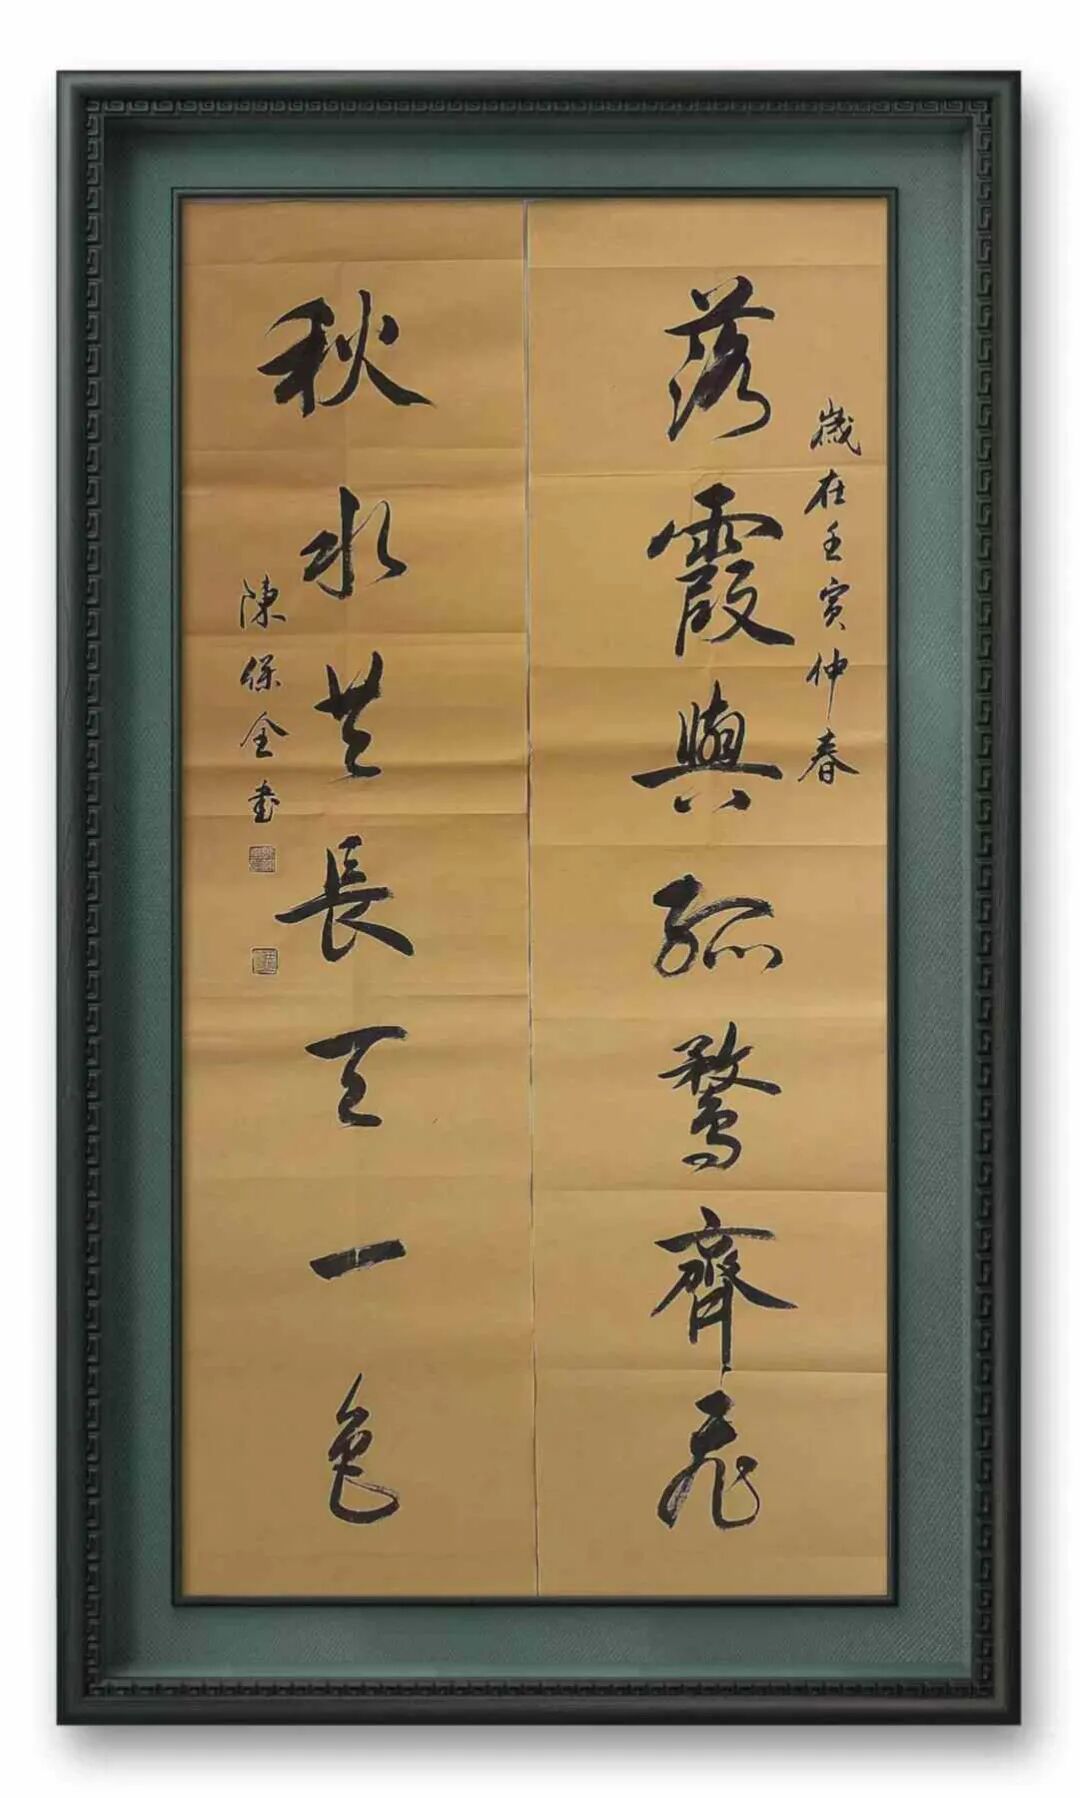 歲在壬寅仲春
落霞與孤鶩齊飛
秋水共長天一色
陳保全書